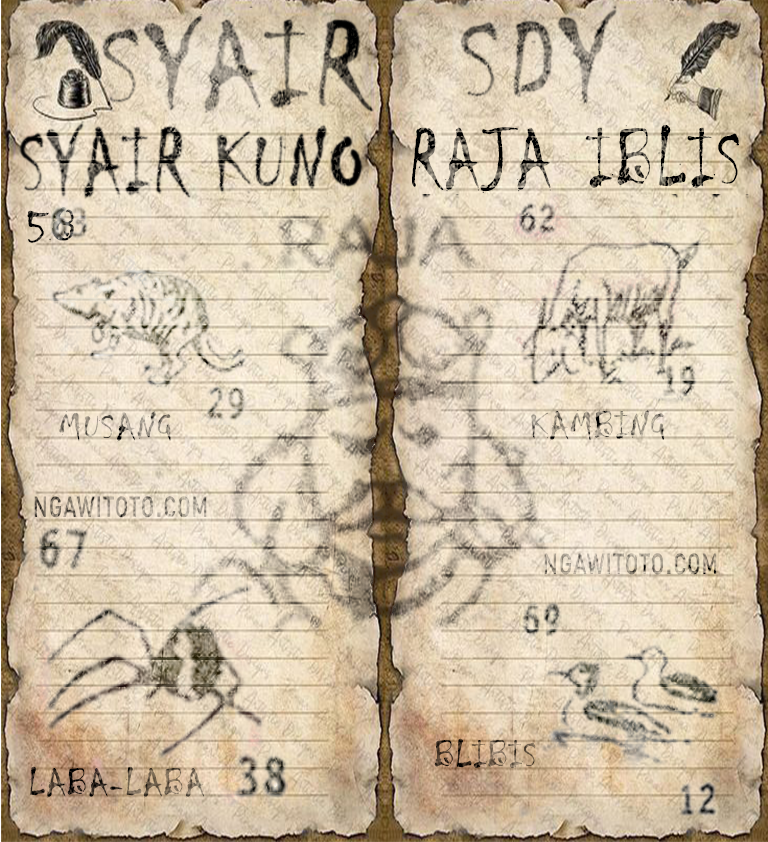 SYAIR SDY
SYAIR KUNO RAJA IBLIS
RAJA
62
29
19
MUSANG
KAMBING
NGAWITOTO.COM
67
NGAWITOTO.COM
69
BLIBIS
LABA-LABA 38
12